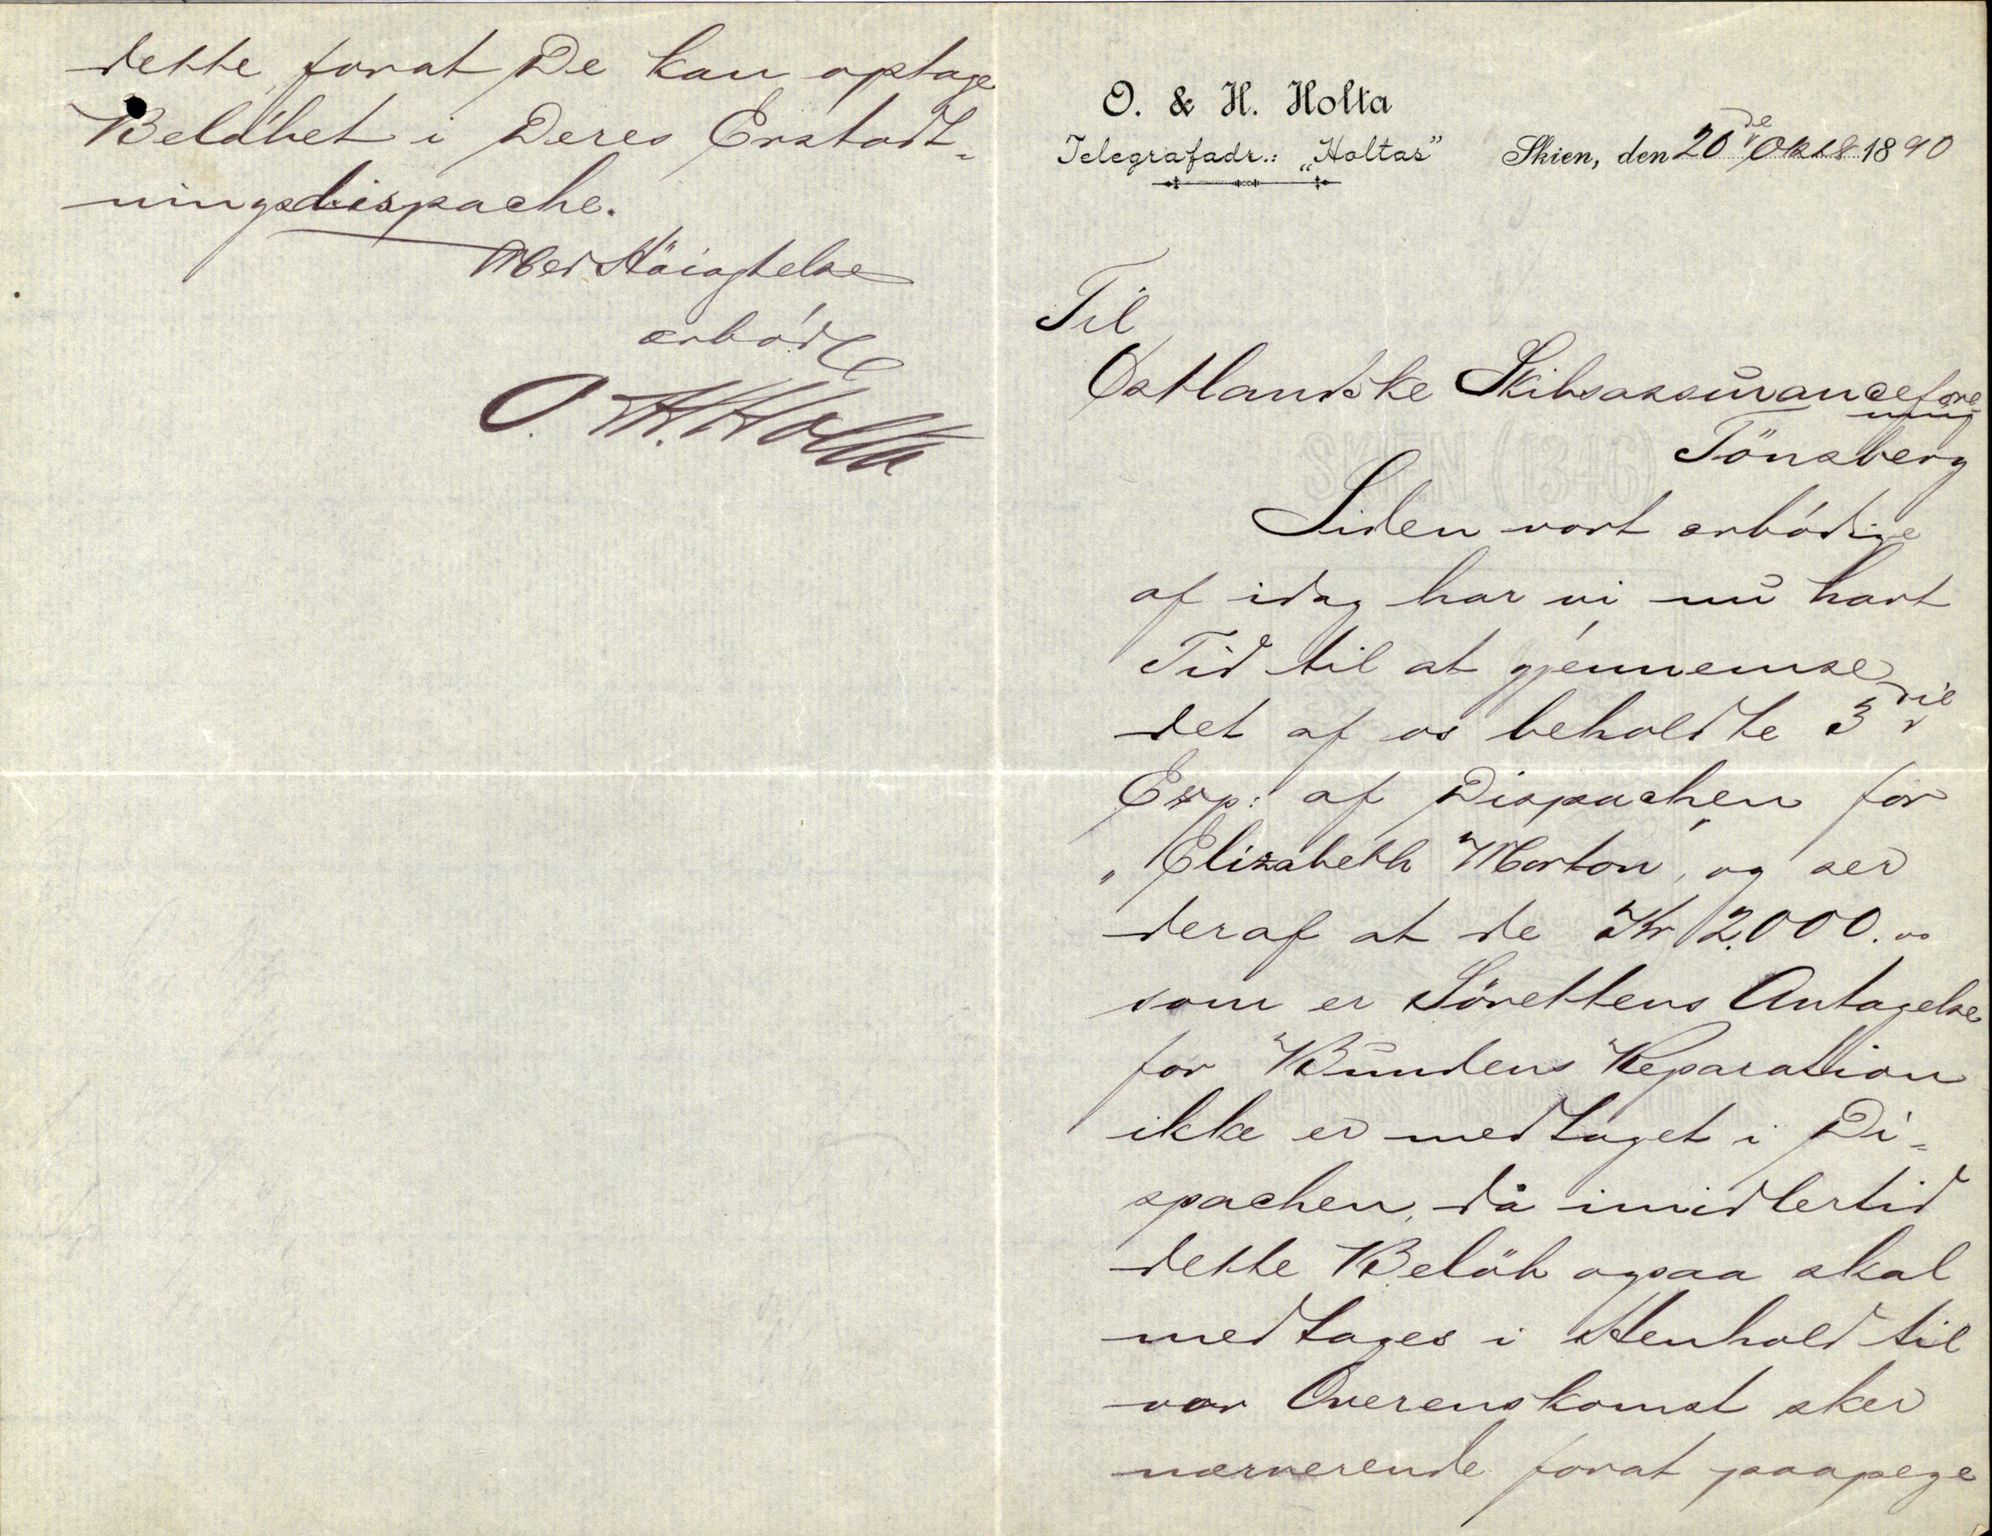 O. & H. Holta
Telegrafadr.: „Holtas”
Skien, den 20de Oktb 1890
Til
Østlandske Skibsassuranceforening
Tönsberg
Siden vort ærbödige
af idag har vi nu havt
Tid til at gjennemse
det af os beholdte 3die
Exp: af Dispachen for
„Elizabeth Morton", og ser
deraf at de Kr 2.000.00
som er Sörettens Antagelse
for Bundens Reparation
ikke er medtaget i Di-
spachen, da imidlertid
dette Belöb ogsaa skal
medtages i Henhold til
vor Overenskomst sker
nærværende forat paapege
dette, forat De kan optage
Belöbet i Deres Erstatt-
ningsdispache.
Med Höiagtelse
ærböd
O. & H. Holta